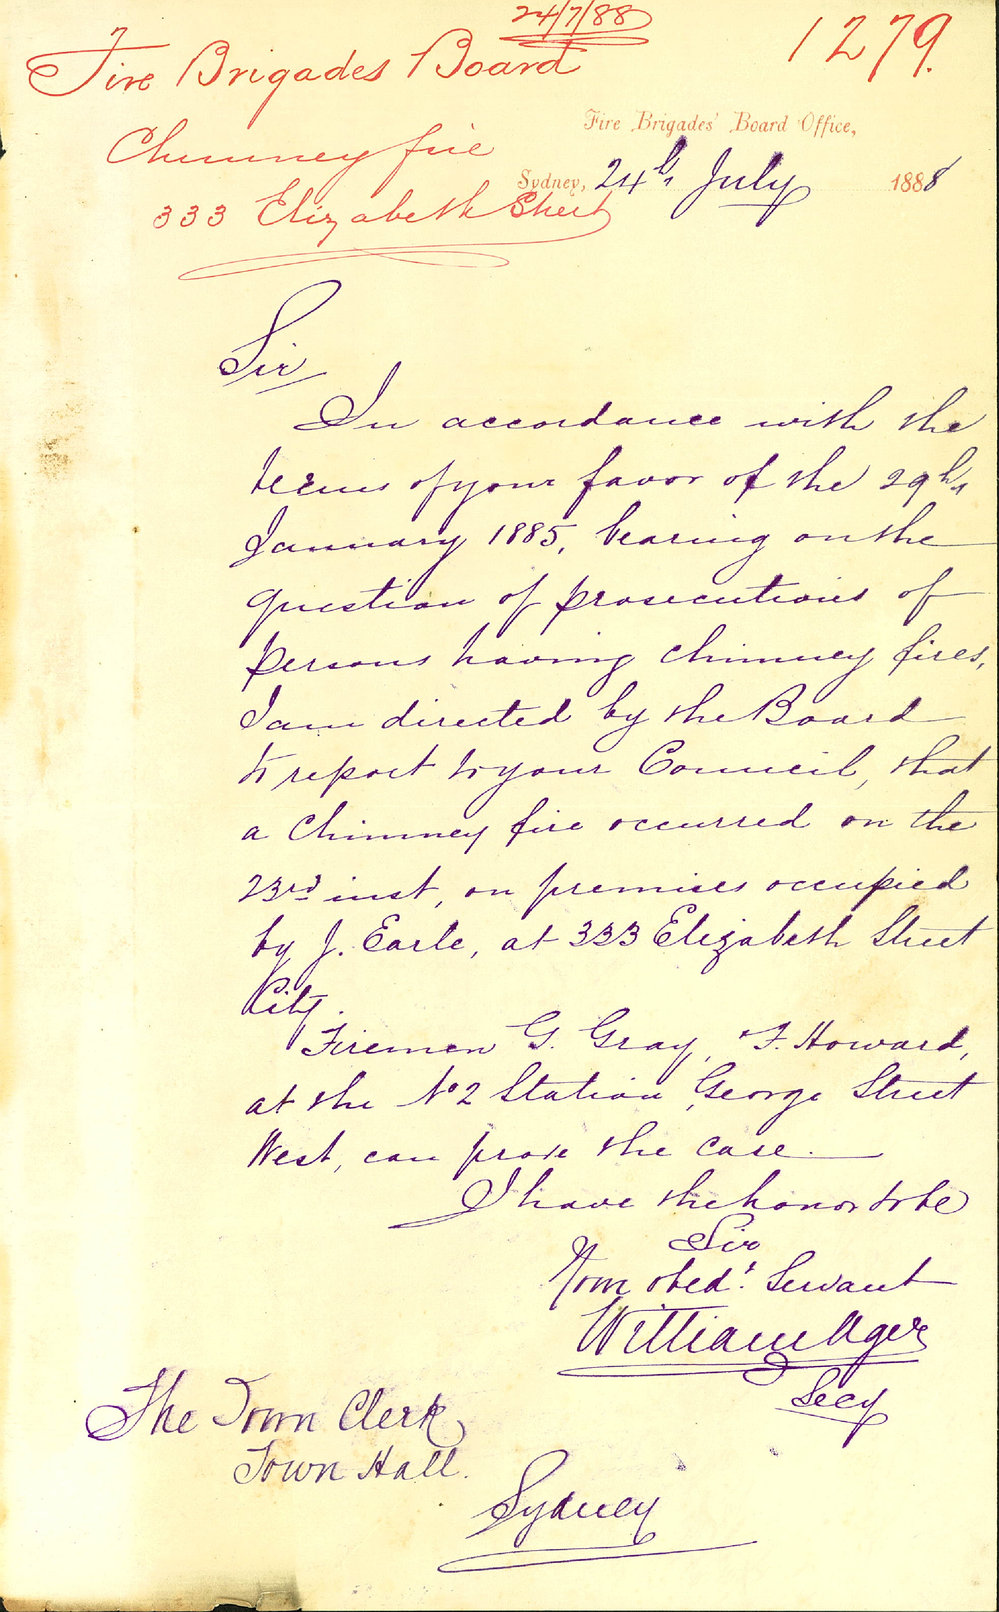 24/7/88
1279.
Fire Brigades Board
Fire Brigades' Board Office,
Chimney fire
Sydney, 24th July 1888
333 Elizabeth Street
Sir
In accordance with the
terms of your favor of the 29th
January 1885, bearing on the
question of prosecutions of
persons having chimney fires,
I am directed by the Board
to report to your Council, that
a chimney fire occurred on the
23rd inst, on premises occupied
by J. Earle, at 333 Elizabeth Street
City.
Firemen G. Gray, & F. Howard,
at the No 2 Station, George Street
West, can prove the case.
I have the honor to be
Sir
Your obedt. Servant
William Ager
Secy
The Town Clerk
Town Hall.
Sydney